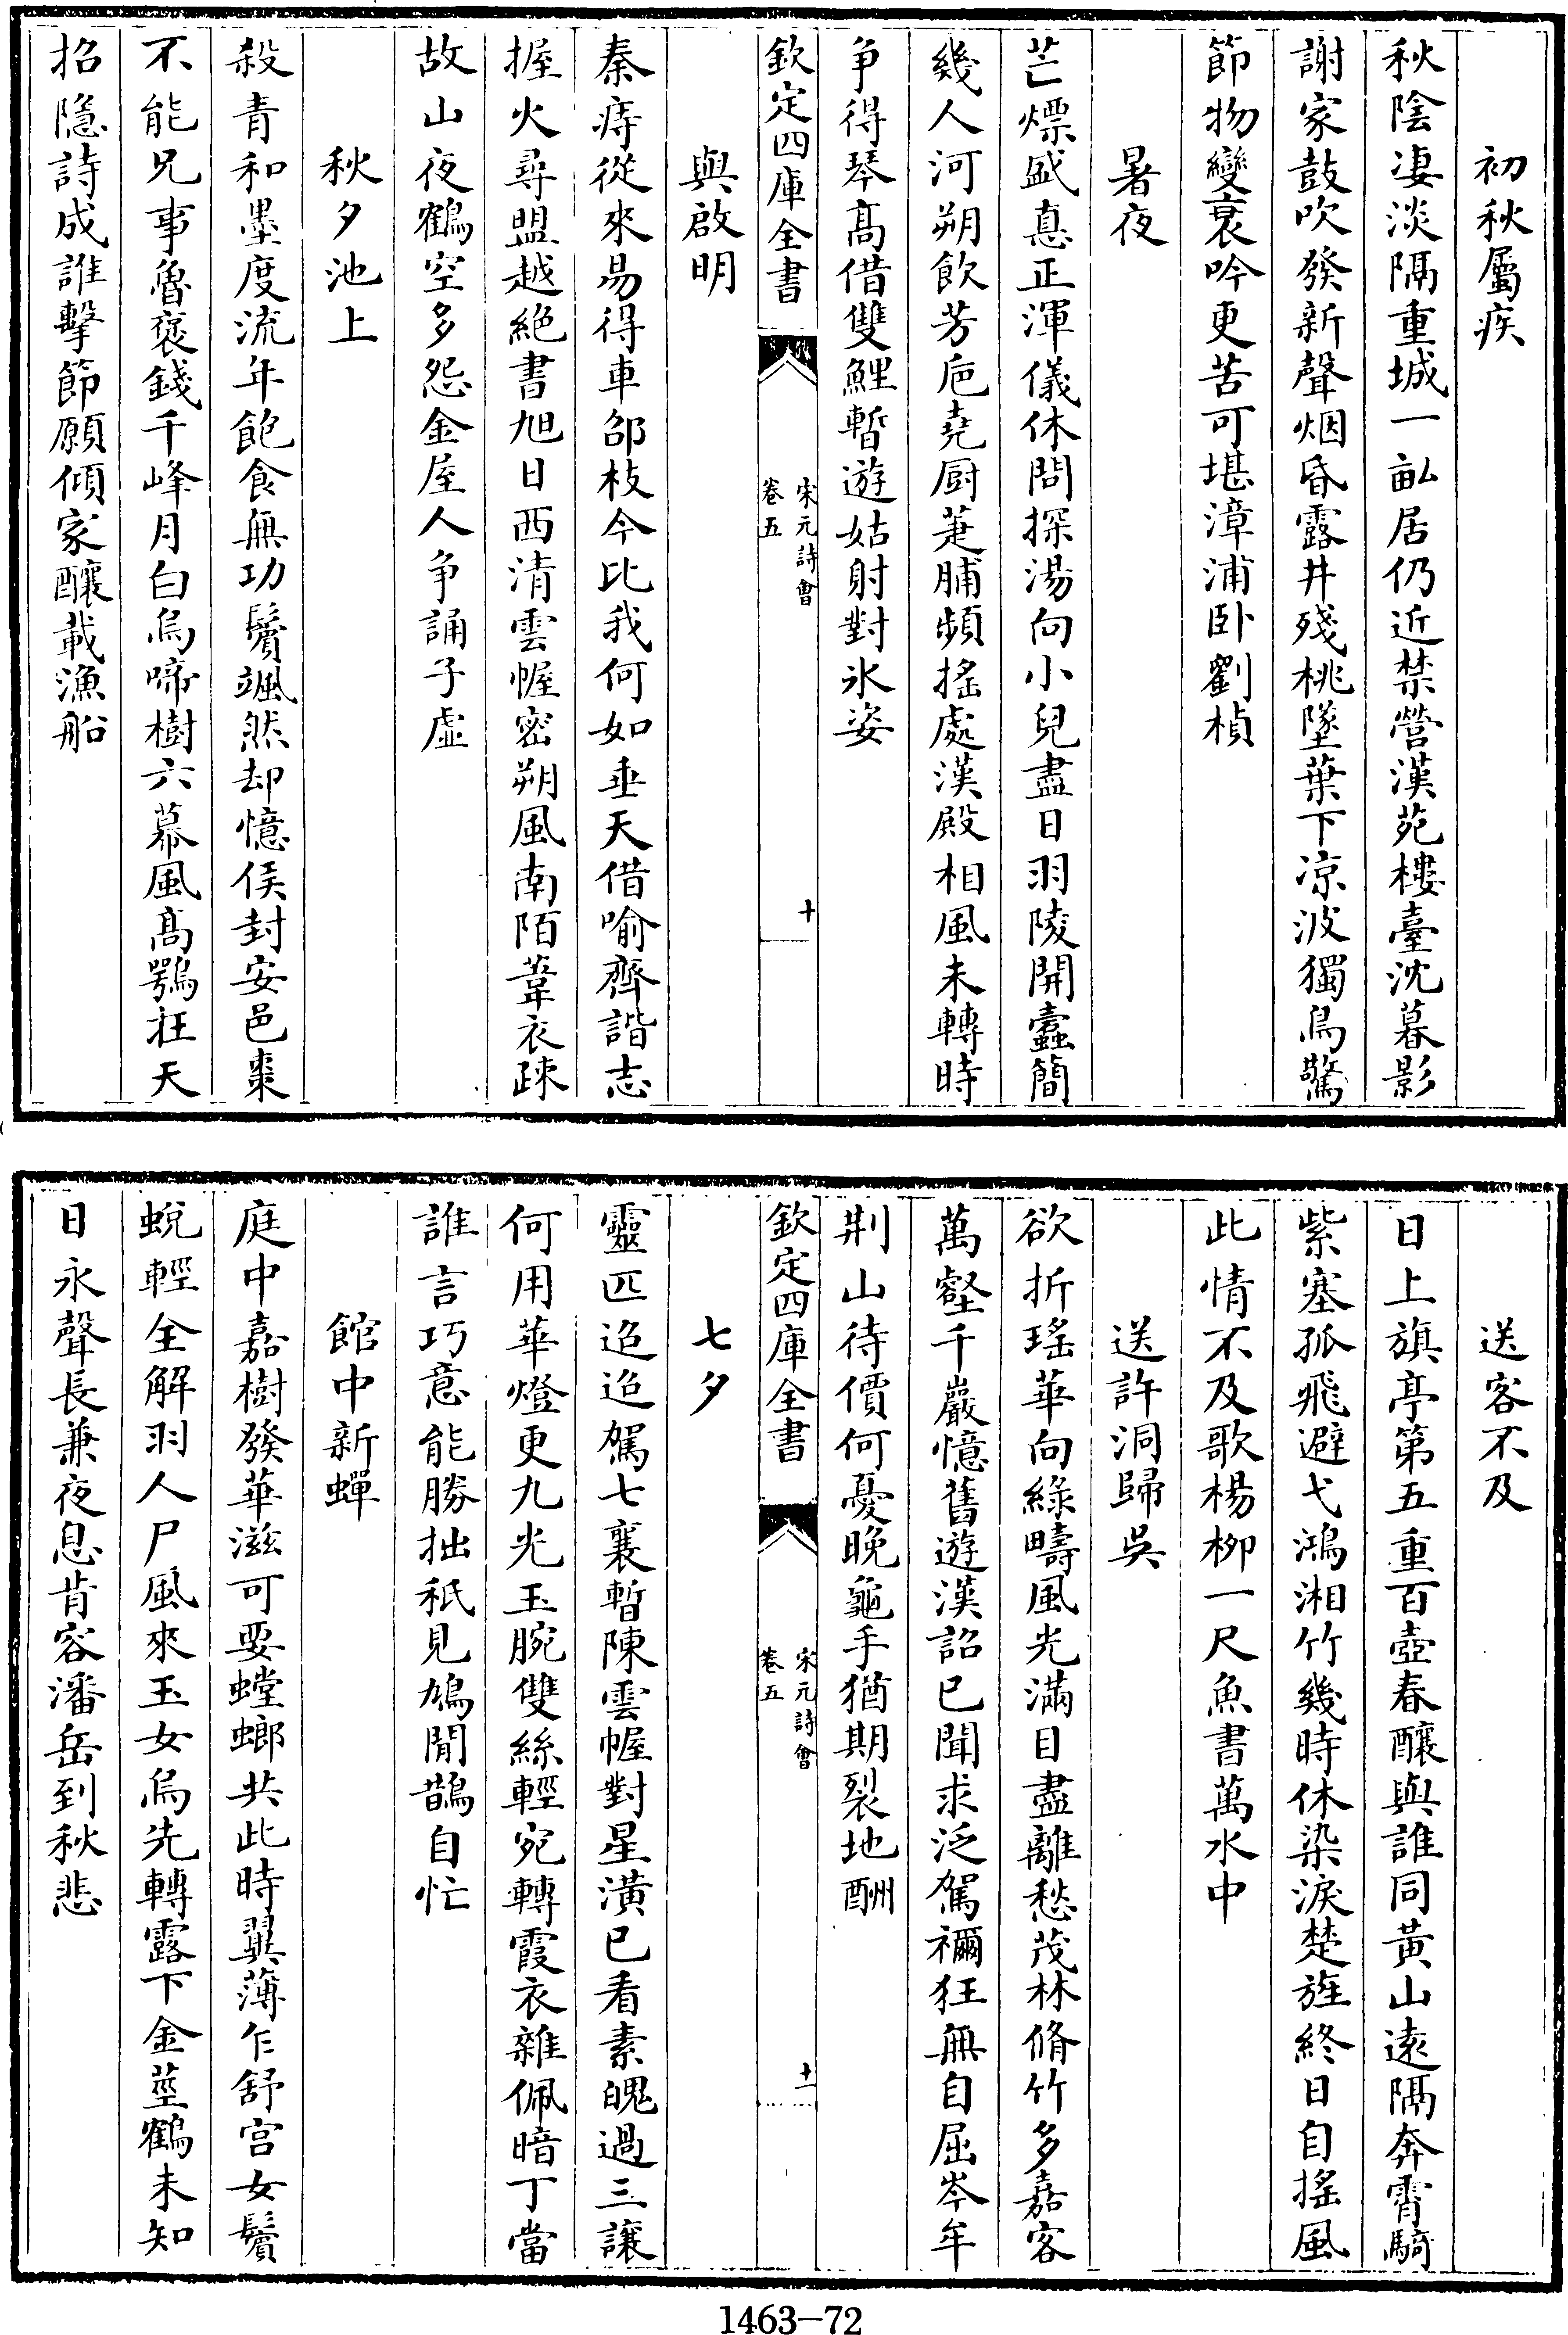 初秋屬疾
秋陰凄淡隔重城一畝居仍近禁營漢苑樓臺沈暮影
謝家鼓吹發新聲烟昏露井殘桃墜葉下凉波獨鳥驚
節物變衰吟更苦可堪漳浦卧劉楨
暑夜
芒熛盛憙正渾儀休問探湯向小兒盡日羽陵開蠹簡
幾人河朔飲芳巵堯厨萐脯頻搖處漢殿相風未轉時
争得琴髙借雙鯉暫遊姑射對氷姿
欽定四庫全書
宋元詩會
卷五
十
與啟明
秦痔從來易得車郤枝今比我何如垂天借喻齊諧志
握火尋盟越絶書旭日西清雲幄密朔風南陌葦衣疎
故山夜鶴空多怨金屋人争誦子虛
秋夕池上
殺青和墨度流年飽食無功鬢颯然却憶侯封安邑棗
不能兄事魯褒錢千峰月白烏啼樹六幕風髙鶚在天
招隱詩成誰擊節願傾家釀載漁船
送客不及
日上旗亭第五重百壺春釀與誰同黃山遠隔奔霄騎
紫塞孤飛避弋鴻湘竹幾時休染淚楚旌終日自搖風
此情不及歌楊柳一尺魚書萬水中
送許洞歸吳
欲折瑤華向綠疇風光滿目盡離愁茂林脩竹多嘉客
萬壑千巖憶舊遊漢詔已聞求泛駕禰狂無自屈岑牟
荆山待價何憂晚龜手猶期裂地酬
欽定四庫全書
宋元詩會
卷五
十一
七夕
靈匹迢迢駕七襄暫陳雲幄對星潢已看素魄過三讓
何用華燈更九光玉腕雙絲輕宛轉霞衣雜佩暗丁當
誰言巧意能勝拙秖見鳩閒鵲自忙
館中新蟬
庭中嘉樹發華滋可要螳螂共此時翼薄乍舒宫女鬢
蛻輕全解羽人尸風來玉女烏先轉露下金莖鶴未知
日永聲長兼夜息肯容潘岳到秋悲
1463-72